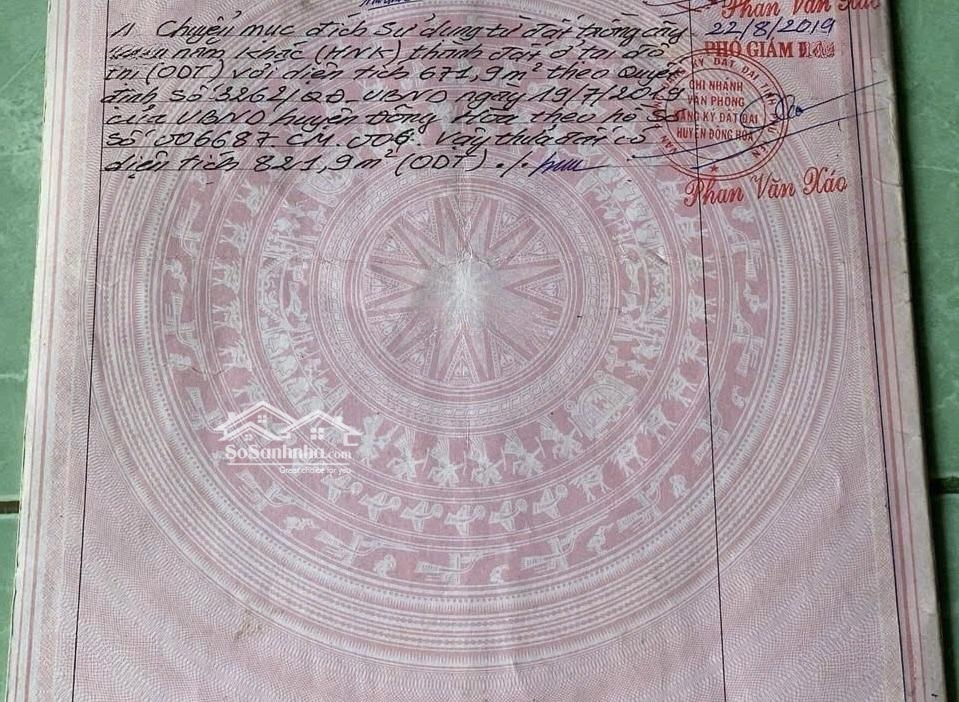 Phan Văn Xáo
1) Chuyển mục đích sử dụng từ đất trồng cây
năm khác (HNK) thành đất ở tại đô
thị (ODT) với diện tích 671,9m² theo Quyết
định số 3262/QĐ_UBND ngày 19/7/2019
của UBND huyện Đông Hòa theo hồ sơ
số 006687.CM.006. Vậy thửa đất có
diện tích 821,9m² (ODT)./.
22/8/2019
PHÓ GIÁM ĐỐC
KÝ ĐẤT ĐAI
CHI NHÁNH
VĂN PHÒNG
ĐĂNG KÝ ĐẤT ĐAI
HUYỆN ĐÔNG HÒA
Phan Văn Xáo
SoSanhnha.com
Great choice for you